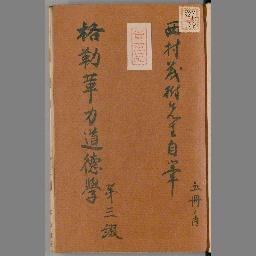 西村茂樹先生自筆
五冊ノ内
格勒革力道德學
第三綴